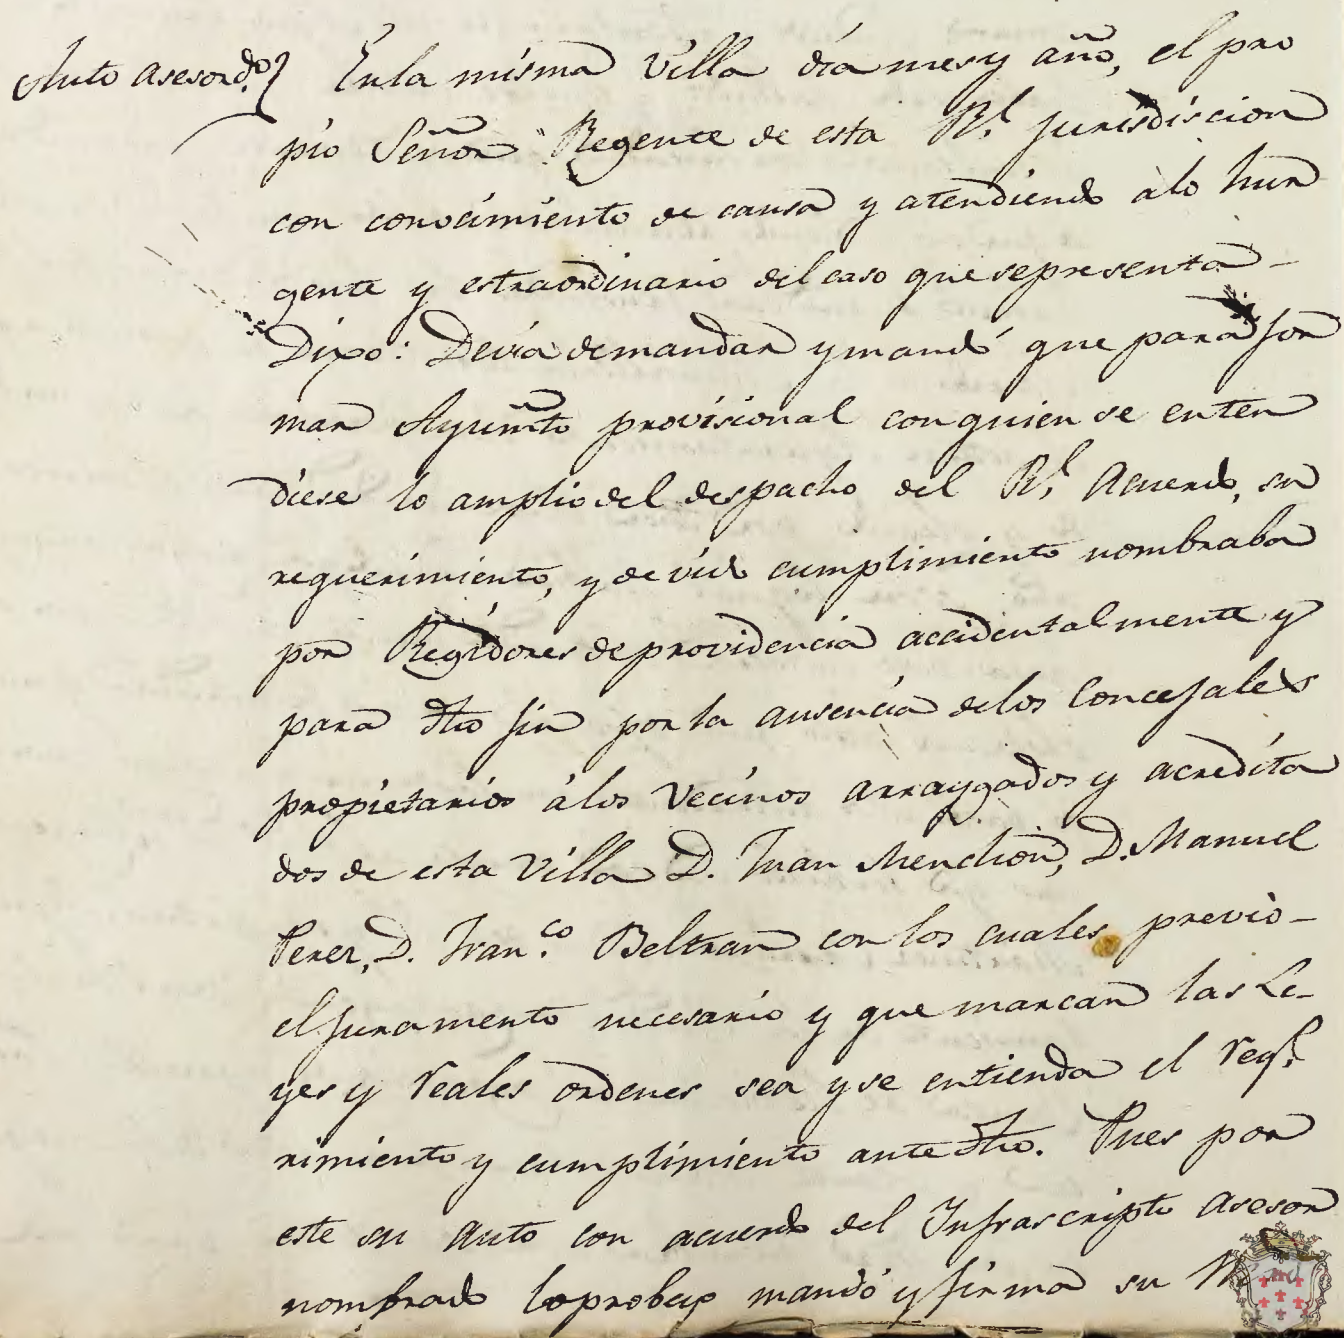 Auto asesordo. En la misma Villa dia mes y año, el pro
pio Señor Regente de esta Rl. Jurisdiscion
con conocimiento de causa y atendiendo alo hur
gente y estraordinario del caso que se presenta -
Dixo: Devia de mandar y mandó que para for
mar Ayunmto provisional con quien se enten
diese lo amplio del despacho del Rl. Acuerdo, su
requerimiento, y devido cumplimiento nombraba
por Regidores de providencia accidentalmente y
para dho fin por la ausencia delos Concejales
propietarios á los Vecinos arraygados y acredita
dos de esta Villa D. Juan Menchon, D. Manuel
Perez, D. Franco. Beltran con los cuales previo -
el juramento necesario y que marcan las Le-
yes y reales ordenes sea y se entienda el reqe.
rimiento y cumplimiento ante dho. Pues por
este su auto con acuerdo del Infrascripto Asesor
nombrado mandó y firma su